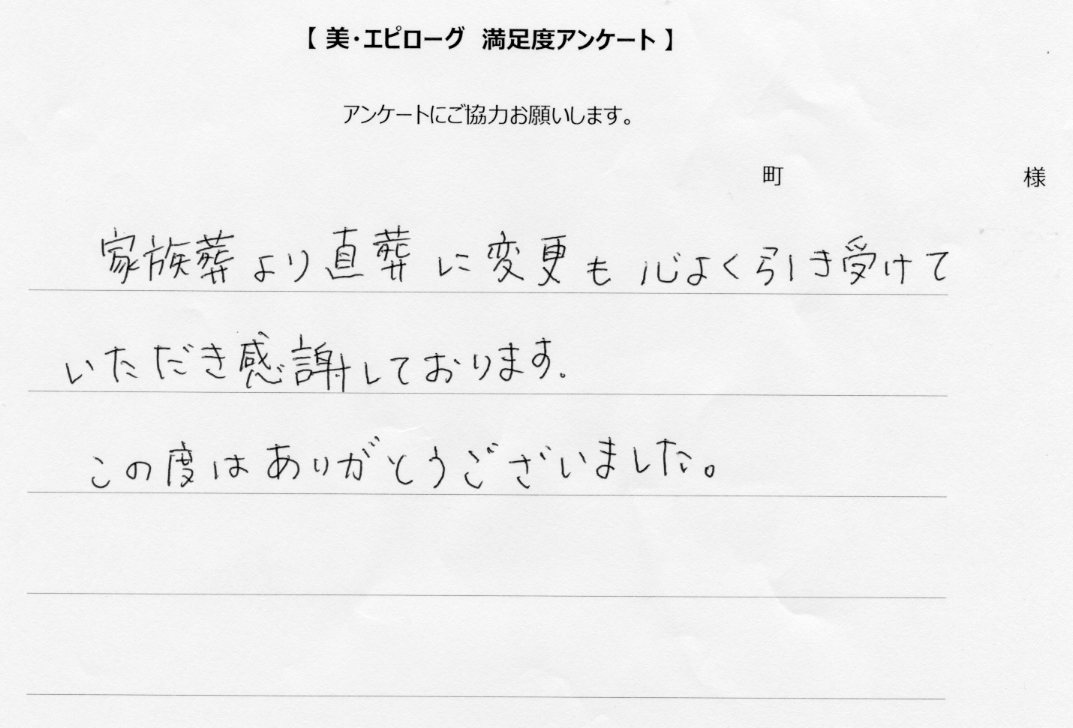 【 美・エピローグ 満足度アンケート 】
アンケートにご協力お願いします。
町 様
家族葬より直葬に変更も 心よく引き受けて
いただき感謝しております.
この度はありがとうございました。